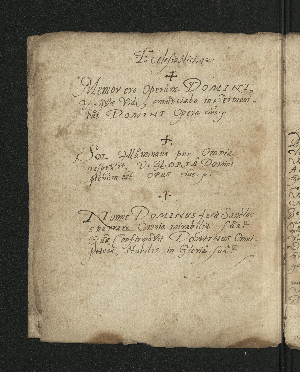 Ecclesiastic. 42
Memor ero Operum DOMINI
quae Vidi annunciabo in sermoni-
bus DOMINI Opera eius
Sol Illuminans per Omnia
respexit GLORIA Domini
plenum est OPUS eius
Nonne DOMINUS fecit Sanctos
enarrare Omnia mirabilia sua
quae confirmavit DOMINUS Omni-
potens Stabiliri in Gloria sua